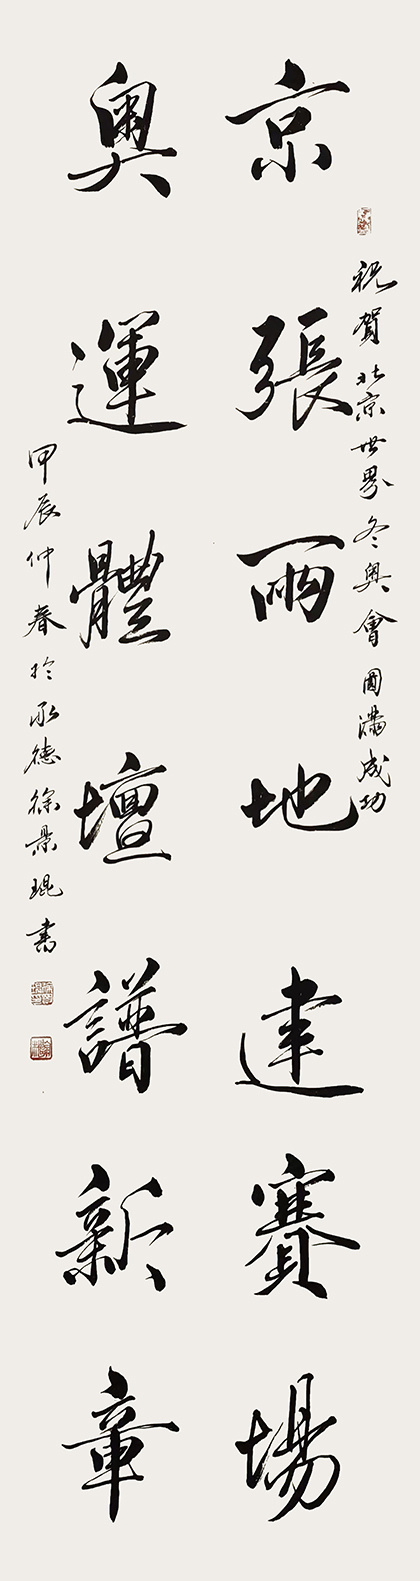 祝賀北京世界冬奥會圓滿成功
京張兩地建賽場
奥運體壇譜新章
甲辰仲春於承德徐景琨書